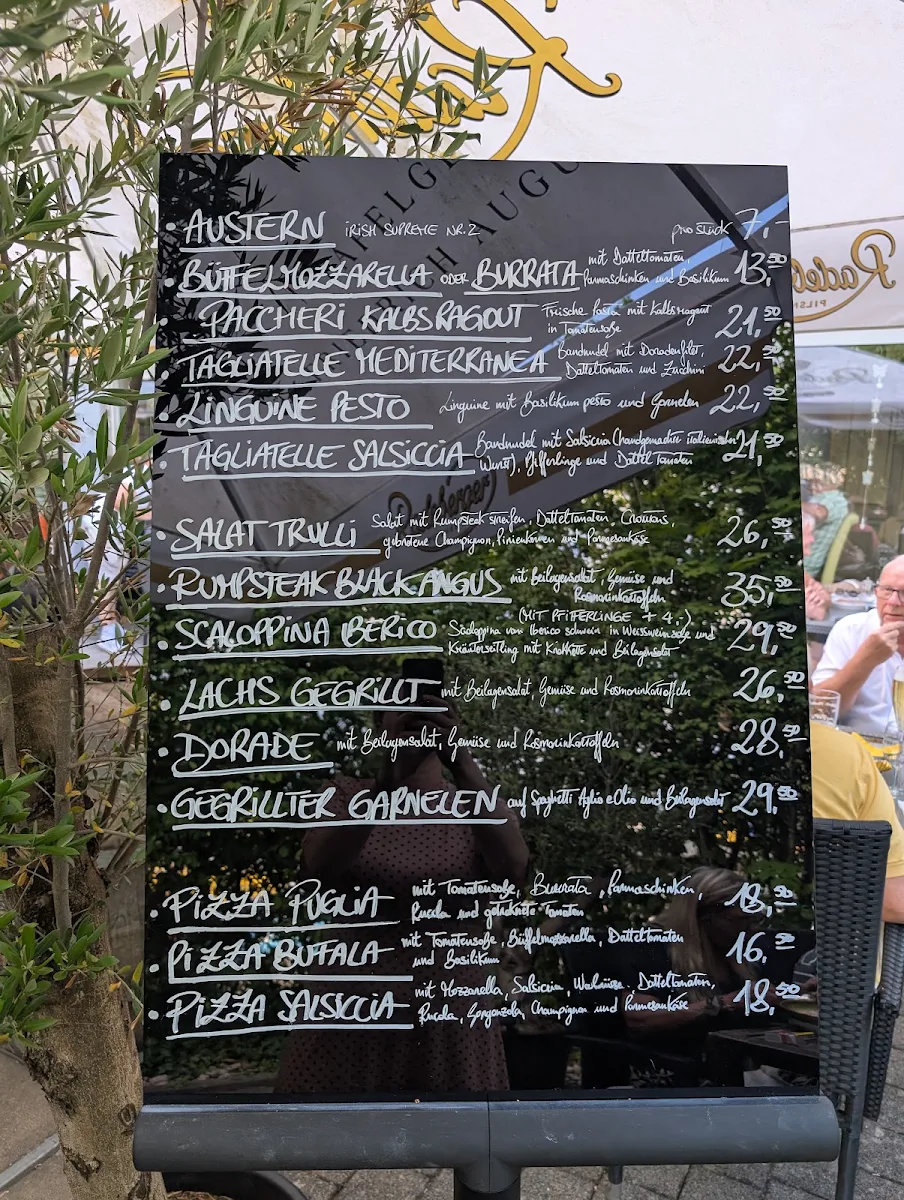 AUSTERN IRISH SUPREME NR.2 pro Stück 7,-
BÜFFELMOZZARELLA ODER BURRATA mit Datteltomaten,
Parmaschinken und Basilikum 13,50
PACCHERI KALBSRAGOUT frische Pasta mit Kalbsragout
in Tomatensoße 21,50
TAGLIATELLE MEDITERRANEA Bandnudel mit Doradenfilet,
Datteltomaten und Zucchini 22,50
LINGUINE PESTO Linguine mit Basilikum pesto und Garnelen 22,50
TAGLIATELLE SALSICCIA Bandnudel mit Salsiccia (handgemachte italienische
Wurst), Pfifferlinge und Dattel Tomaten 21,50
SALAT TRULLI Salat mit Rumpsteak streifen, Datteltomaten, Croutons,
gebratene Champignon, Pinienkernen und Parmesankäse 26,50
RUMPSTEAK BLACK ANGUS mit Beilagensalat, Gemüse und
Rosmarinkartoffeln 35,50
(MIT PFIFFERLINGE + 4,-)
SCALOPPINA IBERICO Scaloppina vom Iberico schwein in Weissweinsoße und
Kräuterseitling mit Kroketten und Beilagensalat 29,50
LACHS GEGRILLT mit Beilagensalat, Gemüse und Rosmarinkartoffeln 26,50
DORADE mit Beilagensalat, Gemüse und Rosmarinkartoffeln 28,50
GEGRILLTER GARNELEN auf Spaghetti Aglio e Olio und Beilagensalat 29,50
PIZZA PUGLIA mit Tomatensoße, Burrata, Parmaschinken,
Rucola und getrocknete Tomaten 18,50
PIZZA BUFALA mit Tomatensoße, Büffelmozzarella, Datteltomaten
und Basilikum 16,50
PIZZA SALSICCIA mit Mozzarella, Salsiccia, Walnüsse, Datteltomaten,
Rucola, Gorgonzola, Champignon und Parmesankäse 18,50
Radeberger